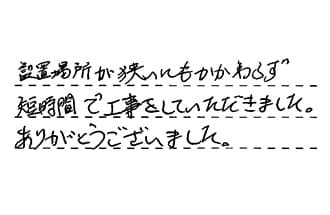 設置場所が狭いにもかかわらず
短時間で工事をしていただきました。
ありがとうございました。